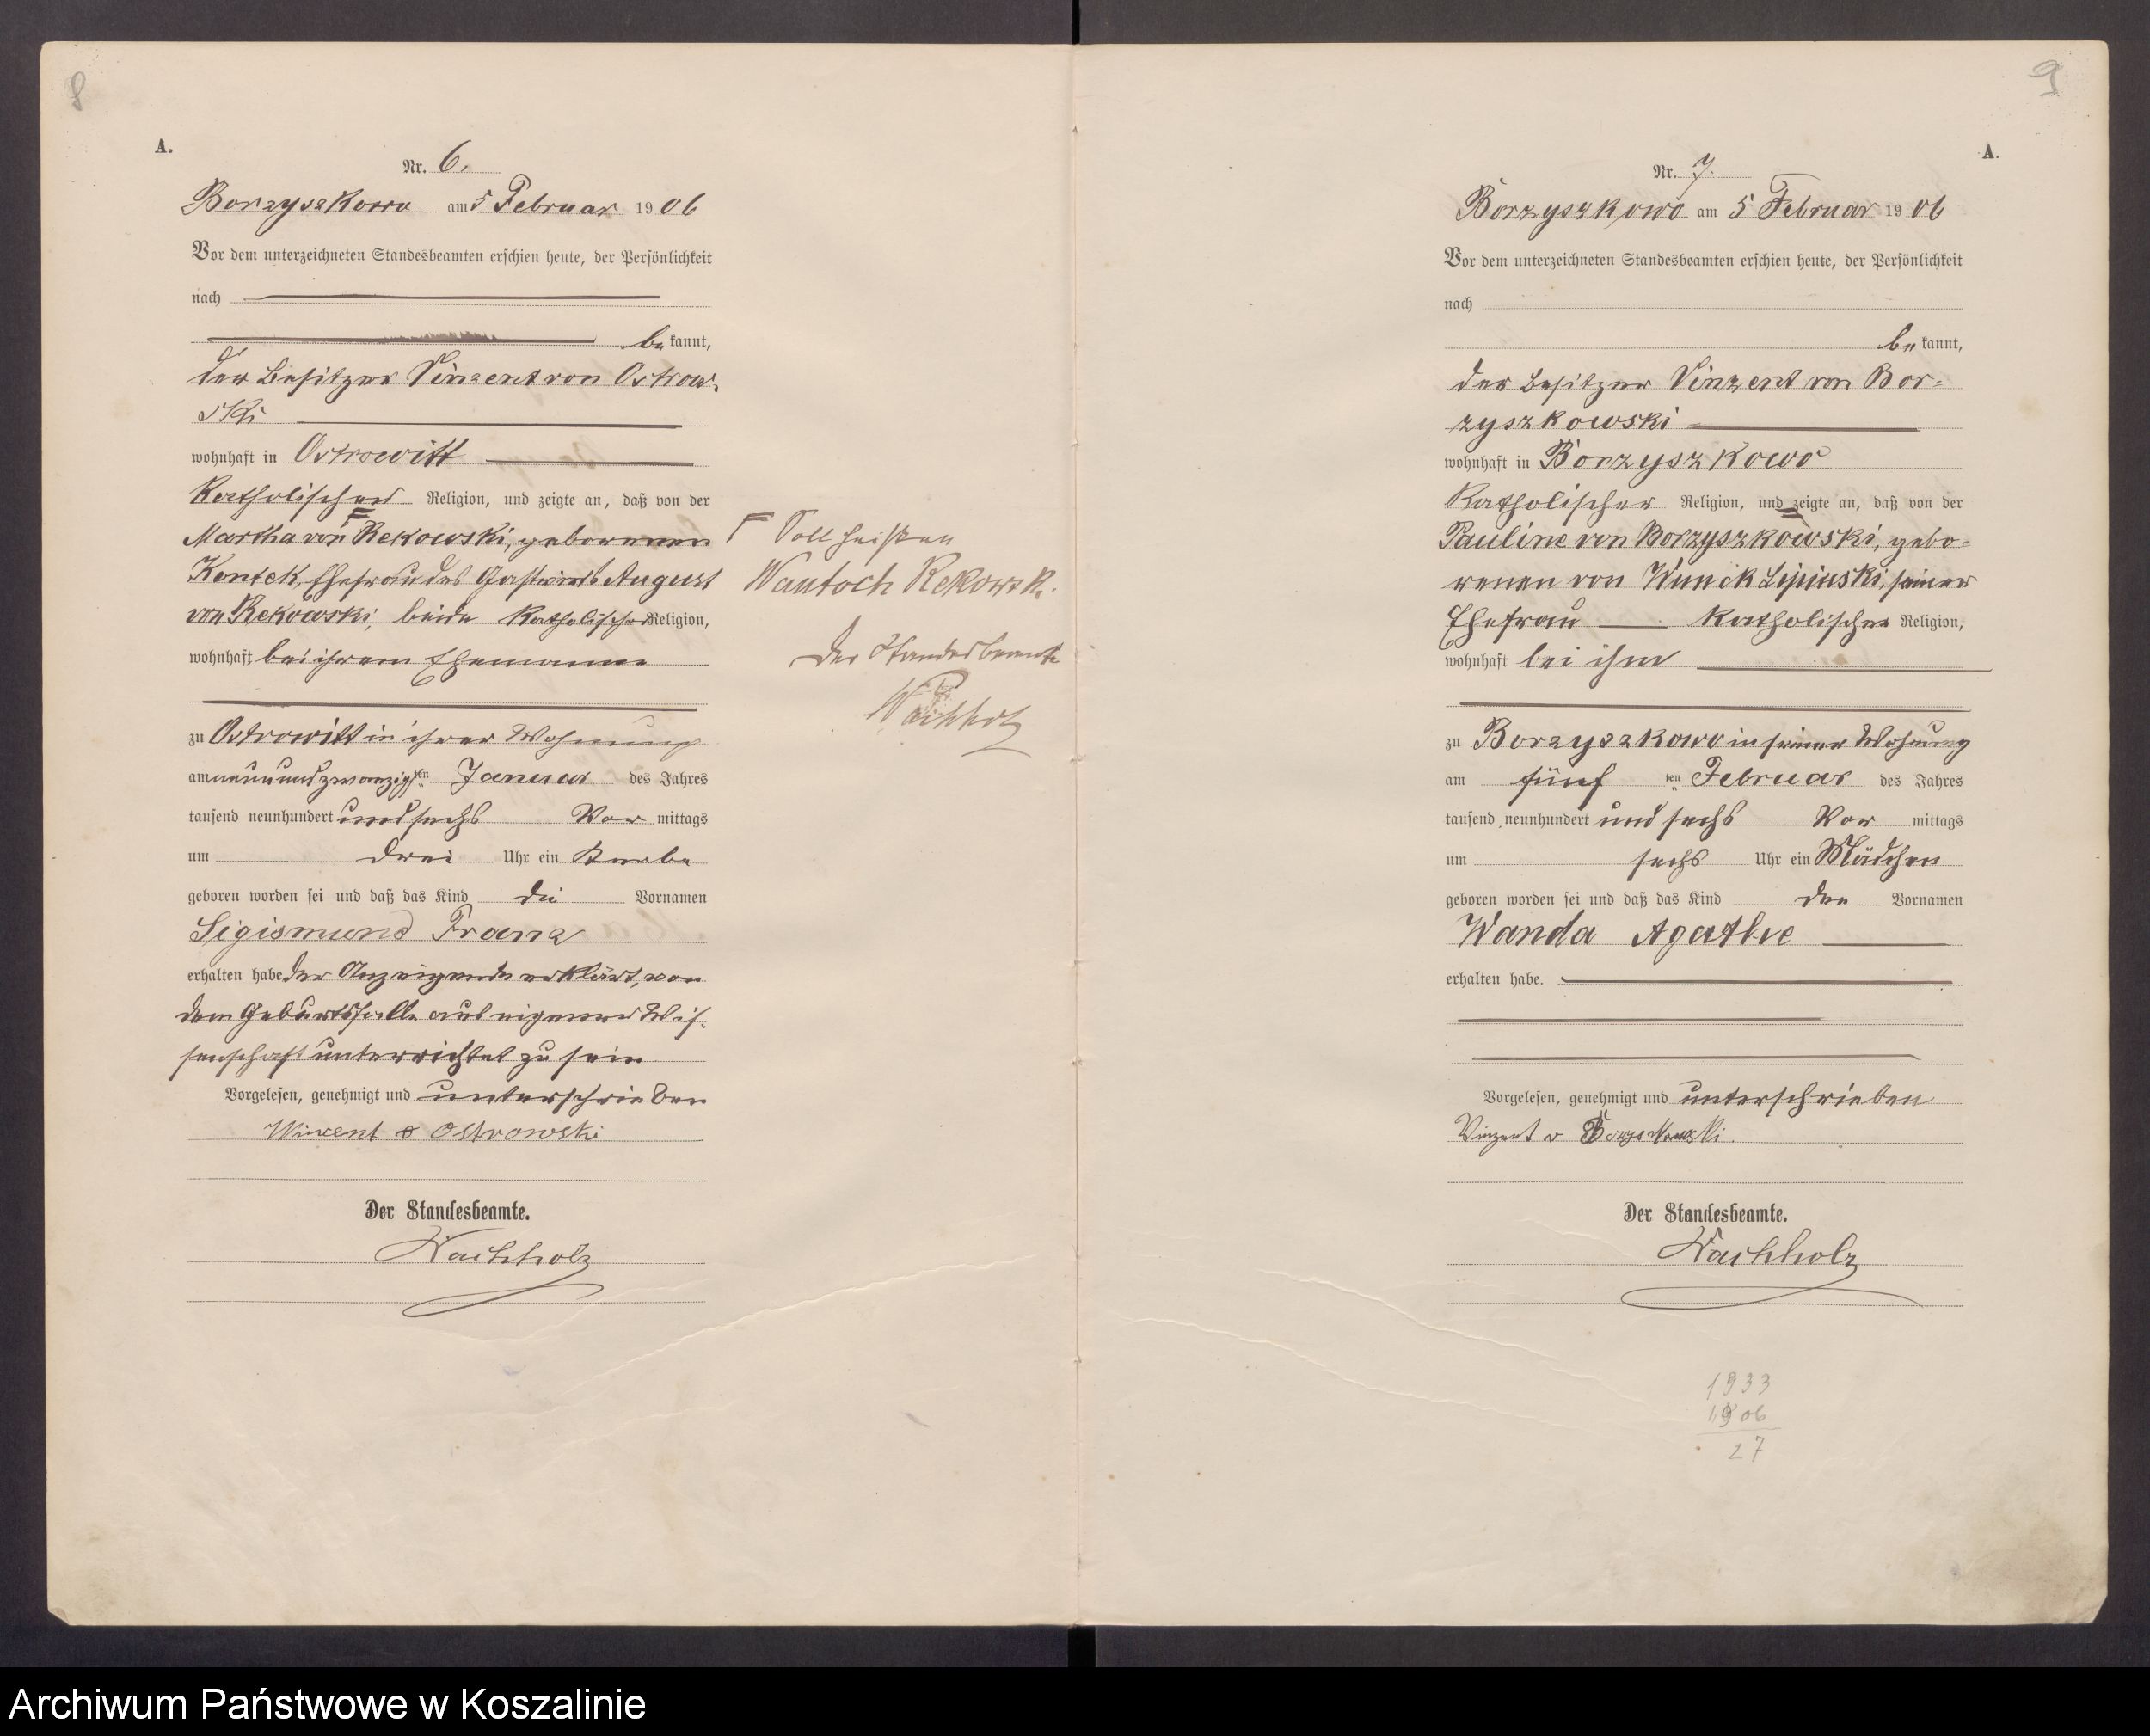 8
A.
Nr. 6.
Borzyszkowo am 5 Februar 1906
Vor dem unterzeichneten Standesbeamten erschien heute, der Persönlichkeit
nach
bekannt,
der Besitzer Vinzent von Ostrow-
ski
wohnhaft in Ostrowitt
Katholischer Religion, und zeigte an, daß von der
Martha von Rekowski, geborenen
Ehefrau des Gastwirts August
von Rekowski, beide Katholischer Religion,
wohnhaft bei ihrem Ehemanne
zu Ostrowitt in ihrer Wohnung
am neunundzwanzigsten Januar des Jahres
tausend neunhundert und sechs Vormittags
um drei Uhr ein Knabe
geboren worden sei und daß das Kind die Vornamen
Sigismund Franz
erhalten habe der Anzeigende erklärt, von
dem Geburtsfalle aus eigener Wis-
senschaft unterrichtet zu sein
Vorgelesen, genehmigt und unterschrieben
Wincent v Ostrowski
Der Standesbeamte.
Wachholz
Soll heißen
Wantoch Rekowski.
Der Standesbeamte
Wachholz
9
A.
Nr. 7.
Borzyszkowo am 5 Februar 1906
Vor dem unterzeichneten Standesbeamten erschien heute, der Persönlichkeit
nach
bekannt,
der Besitzer Vinzent von Bor-
zyszkowski
wohnhaft in Borzyszkowo
Katholischer Religion, und zeigte an, daß von der
Pauline von Borzyszkowski, gebo-
renen von Wnuck Lipinski, seiner
Ehefrau Katholischer Religion,
wohnhaft bei ihm
zu Borzyszkowo in seiner Wohnung
am fünften Februar des Jahres
tausend neunhundert und sechs Vormittags
um sechs Uhr ein Mädchen
geboren worden sei und daß das Kind den Vornamen
Wanda Agathe
erhalten habe.
Vorgelesen, genehmigt und unterschrieben
Vinzent v Borzyskowski.
Der Standesbeamte.
Wachholz
1933
1906
27
Archiwum Państwowe w Koszalinie